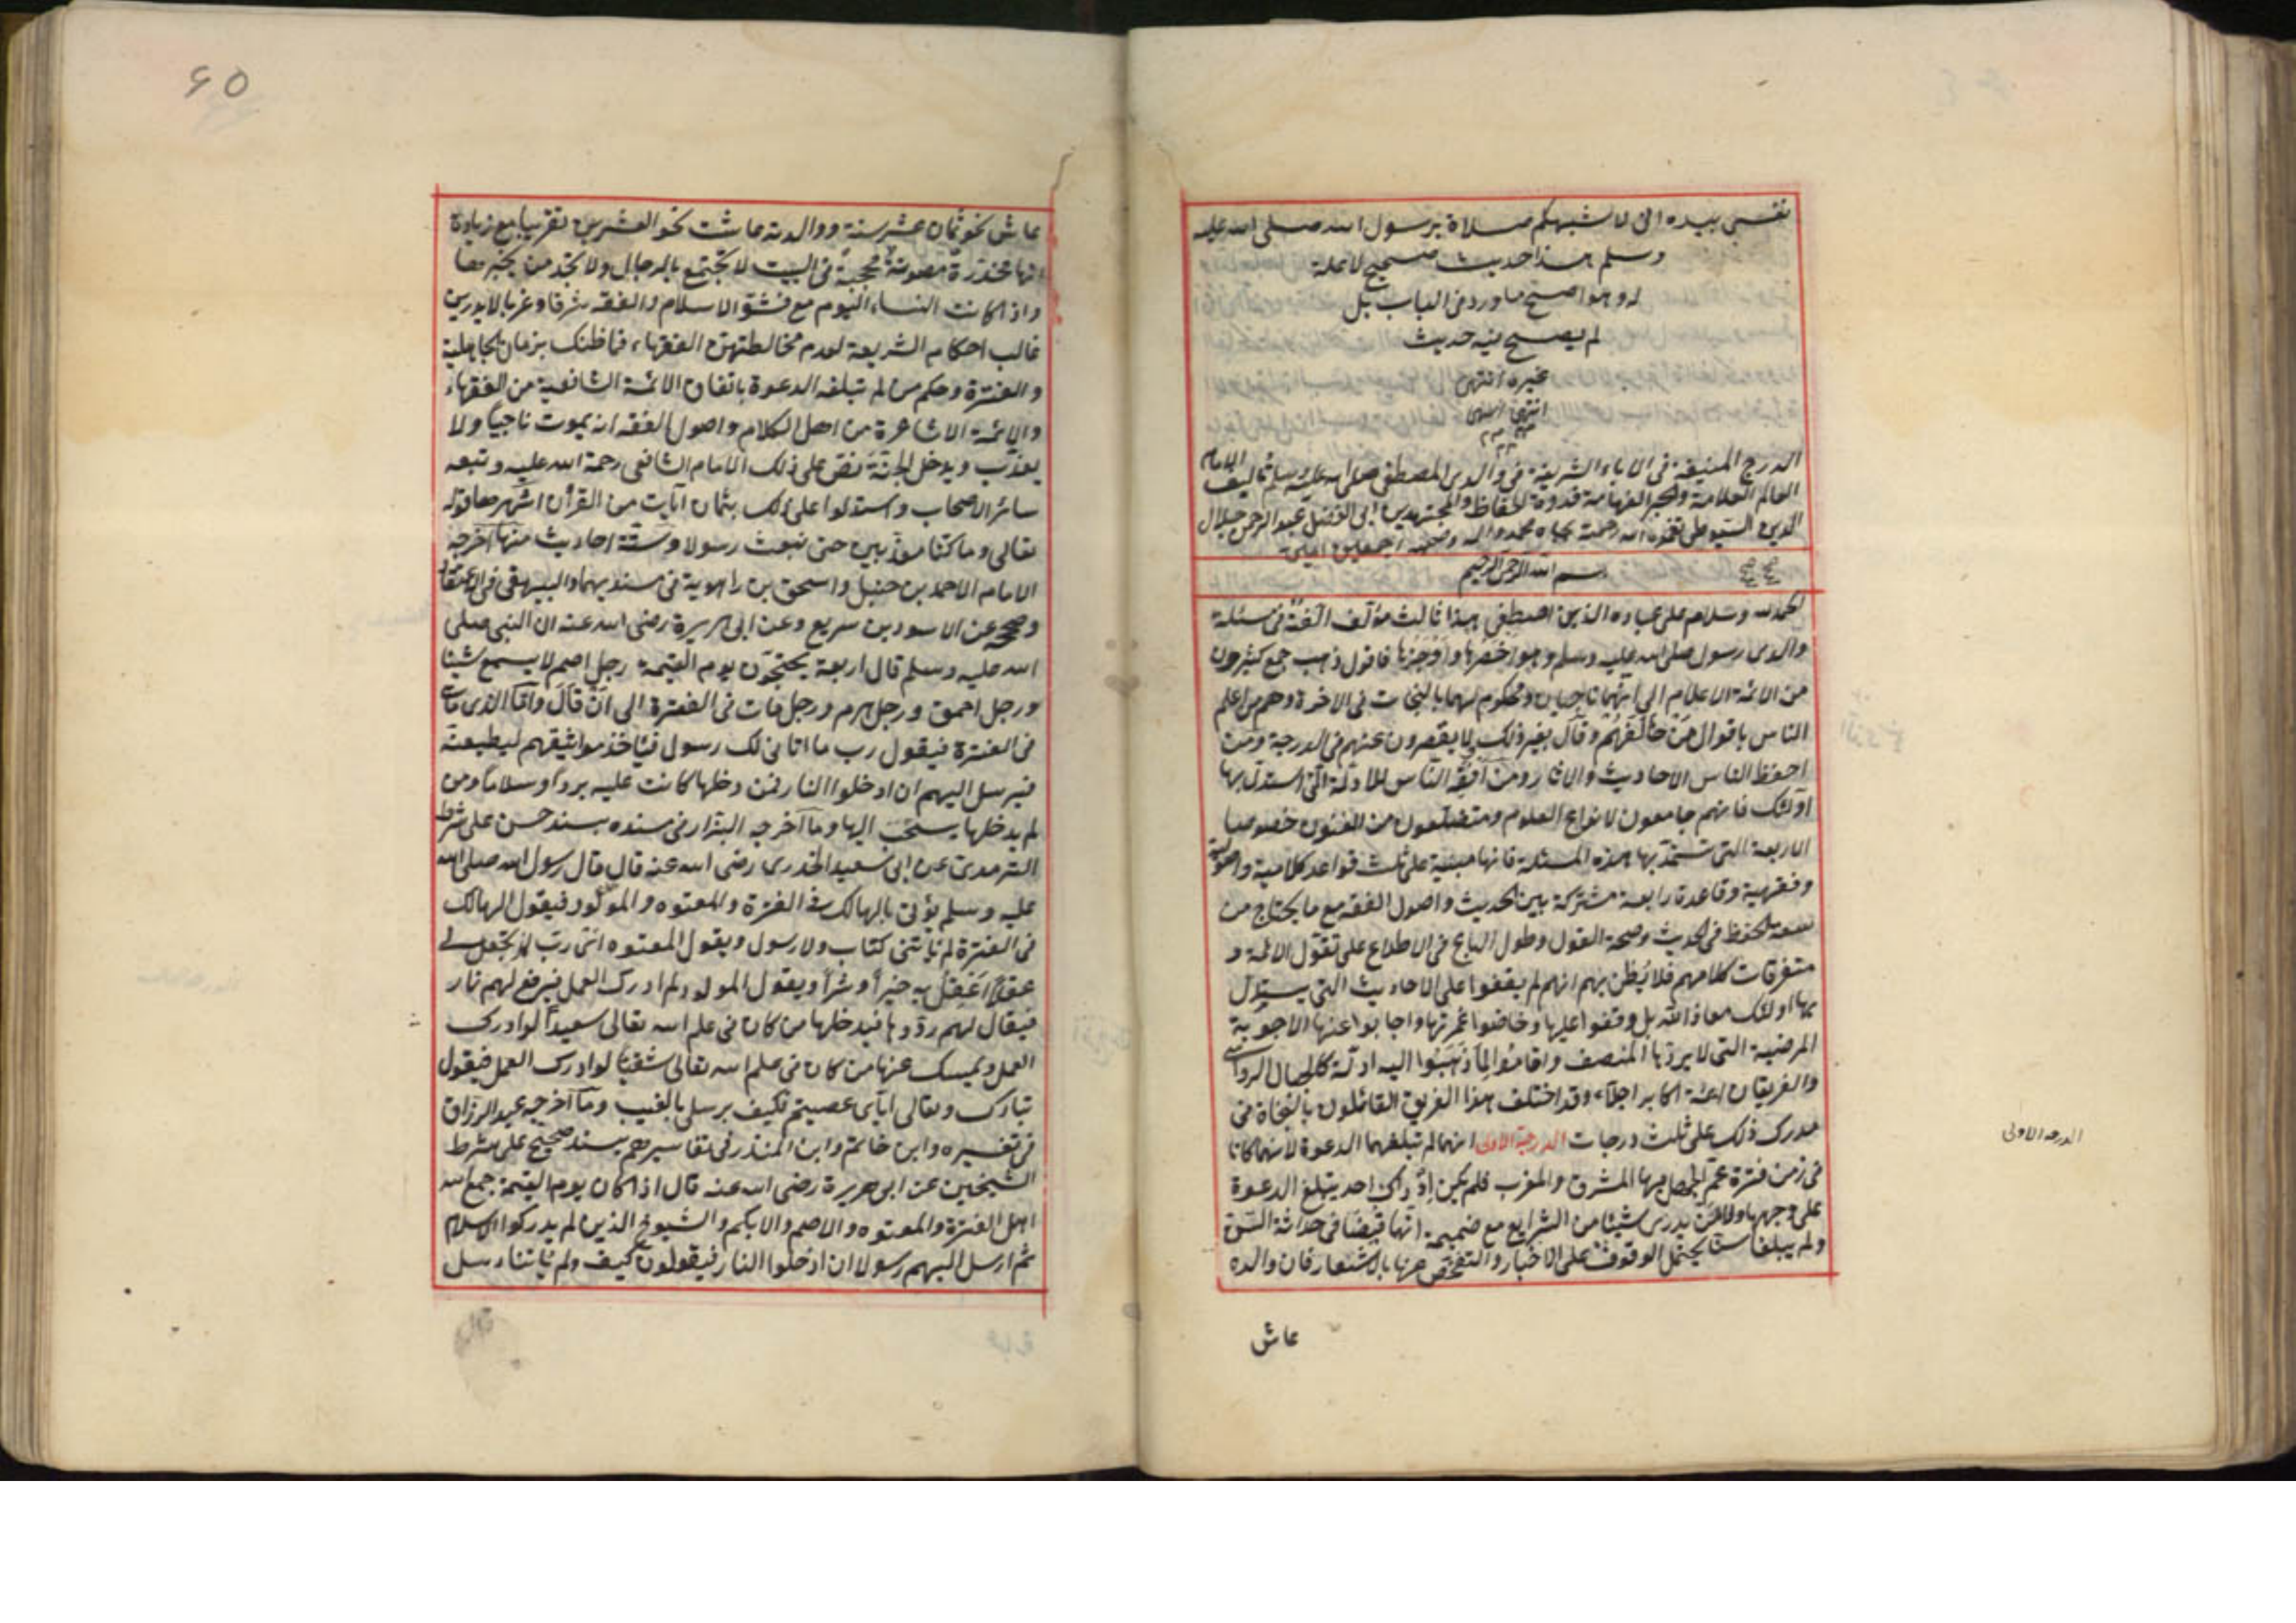 نفسي بيده اني لاشبهكم صلاة برسول الله صلى الله عليه
وسلم هذا حديث صحيح لا علة
له وهو اصح ما ورد في الباب بل
لم يصح فيه حديث
غيره انتهى
انتهى
الدرج المنيفة في الاباء الشريفة في والدي المصطفى صلى الله عليه وسلم تاليف الامام
العالم العلامة والحبر الفهامة قدوة الحفاظ والمجتهدين ابي الفضل عبد الرحمن جلال
الدين السيوطي تغمده الله رحمته بجاه محمد واله وصحبه اجمعين امين
بسم الله الرحمن الرحيم
الحمد لله وسلام على عباده الذين اصطفى هذا ثالث مؤلف الفته في مسئلة
والدي رسول صلى الله عليه وسلم وهو اخصرها واوجزها فاقول ذهب جمع كثيرون
من الائمة الاعلام الى انهما ناجيان ومحكوم لهما بالنجات في الاخرة وهم من اعلم
الناس باقوال من خالفهم وقال بغير ذلك لا يقصرون عنهم في الدرجة ومن
احفظ الناس الاحاديث والاثار ومن افقه الناس للادلة التي استدل بها
اولئك فانهم جامعون لانواع العلوم ومتضلعون من الفنون خصوصيا
الاربعة التي تستمد بها هذه المسئلة فانها مبنية على ثلث قواعد كلامية واصولية
وفقهية وقاعدة رابعة مشتركة بين الحديث واصول الفقه مع ما يحتاج من
سعة الحفظ في الحديث وصحة القول وطول الباع في الاطلاع على تقول الائمة و
متفرقات كلامهم فلا يظن بهم انهم لم يقفوا على الاحاديث التي يستدل
بها اولئك معاذ الله بل وقفوا عليها وخاضوا غمرتها واجابوا عنها الاجوبة
المرضية التي لا يردها المنصف واقاموا لما ذهبوا اليه ادلة كالجبال الرواسي
والفريقان ائمة اكابر اجلاء وقد اختلف هذا الفريق القائلون بالنجاة في
مدرك ذلك على ثلث درجات الدرجة الاولى انهما لم تبلغهما الدعوة لانهما كانا
في زمن فترة عم الجهل فيها المشرق والمغرب فلم يكن اذ ذاك احد يبلغ الدعوة
على وجهها ولا من يدرس شيئا من الشرايع مع ضميمة انها قبضا في حداثة السن
ولم يبلغا سنا يحتمل الوقوف على الاخبار والتفحص عنها بالاشتعار فان والده
عاش
الدرجه الاولى
60
عاش نحو ثمان عشر سنة ووالدته عاشت نحو العشرين تقريبا مع زيادة
انها مخدرة مصونة محجبة في البيت لا تجتمع بالرجال ولا تجد من يخبرها
واذا كانت النساء اليوم مع فشو الاسلام والفقه شرقا وغربا لا يدرين
غالب احكام الشريعة لعدم مخالطتهن الفقهاء فما ظنك بزمان الجاهلية
والفترة وحكم من لم تبلغه الدعوة باتفاق الائمة الشافعية من الفقهاء
والائمة الاشاعرة من اهل الكلام واصول الفقه انه يموت ناجيا ولا
يعذب ويدخل الجنة نص على ذلك الامام الشافعي رحمة الله عليه وتبعه
سائر الاصحاب واستدلوا على ذلك بثمان ايات من القرآن اشهرها قوله
تعالى وما كنا معذبين حتى نبعث رسولا وستة احاديث منها اخرجه
الامام الاحمد بن حنبل واسحق بن راهوية في مسنديهما والبيهقي في الاعتقاد
وصححه عن الاسود بن سريع وعن ابي هريرة رضي الله عنه ان النبي صلى
الله عليه وسلم قال اربعة يحتجون يوم القيمة رجل اصم لا يسمع شيئا
ورجل احمق ورجل هرم ورجل مات في الفترة الى ان قال واما الذي مات
في الفترة فيقول رب ما اتاني لك رسول فياخذ مواثيقهم ليطيعنه
فيرسل اليهم ان ادخلوا النار فمن دخلها كانت عليه بردا وسلاما ومن
لم يدخلها يسحب اليها وما اخرجه البزار في مسنده بسند حسن على شرط
الترمدي عن ابي سعيد الخدري رضي الله عنه قال قال رسول الله صلى الله
عليه وسلم يؤتى بالهالك في الفترة والمعتوه والمولود فيقول الهالك
في الفترة لم ياتني كتاب ولا رسول ويقول المعتوه اني رب لم تجعل لي
عقلا اعقل به خيرا وشرا ويقول المولود لم ادرك العمل فيرفع لهم نار
فيقال لهم ردوها فيدخلها من كان في علم الله تعالى سعيدا لو ادرك
العمل ويمسك عنها من كان في علم الله تعالى شقيا لو ادرك العمل فيقول
تبارك وتعالى اياي عصيتم فكيف برسلي بالغيب وما اخرجه عبد الرزاق
في تفسيره وابن خاتم وابن المنذر في تفاسيرهم بسند صحيح على شرط
الشيخين عن ابي هريرة رضي الله عنه قال اذا كان يوم القيمة جمع الله
اهل الفترة والمعتوه والاصم والابكم والشيوخ الذين لم يدركوا الاسلام
ثم ارسل اليهم رسولا ان ادخلوا النار فيقولون كيف ولم ياتنا رسل